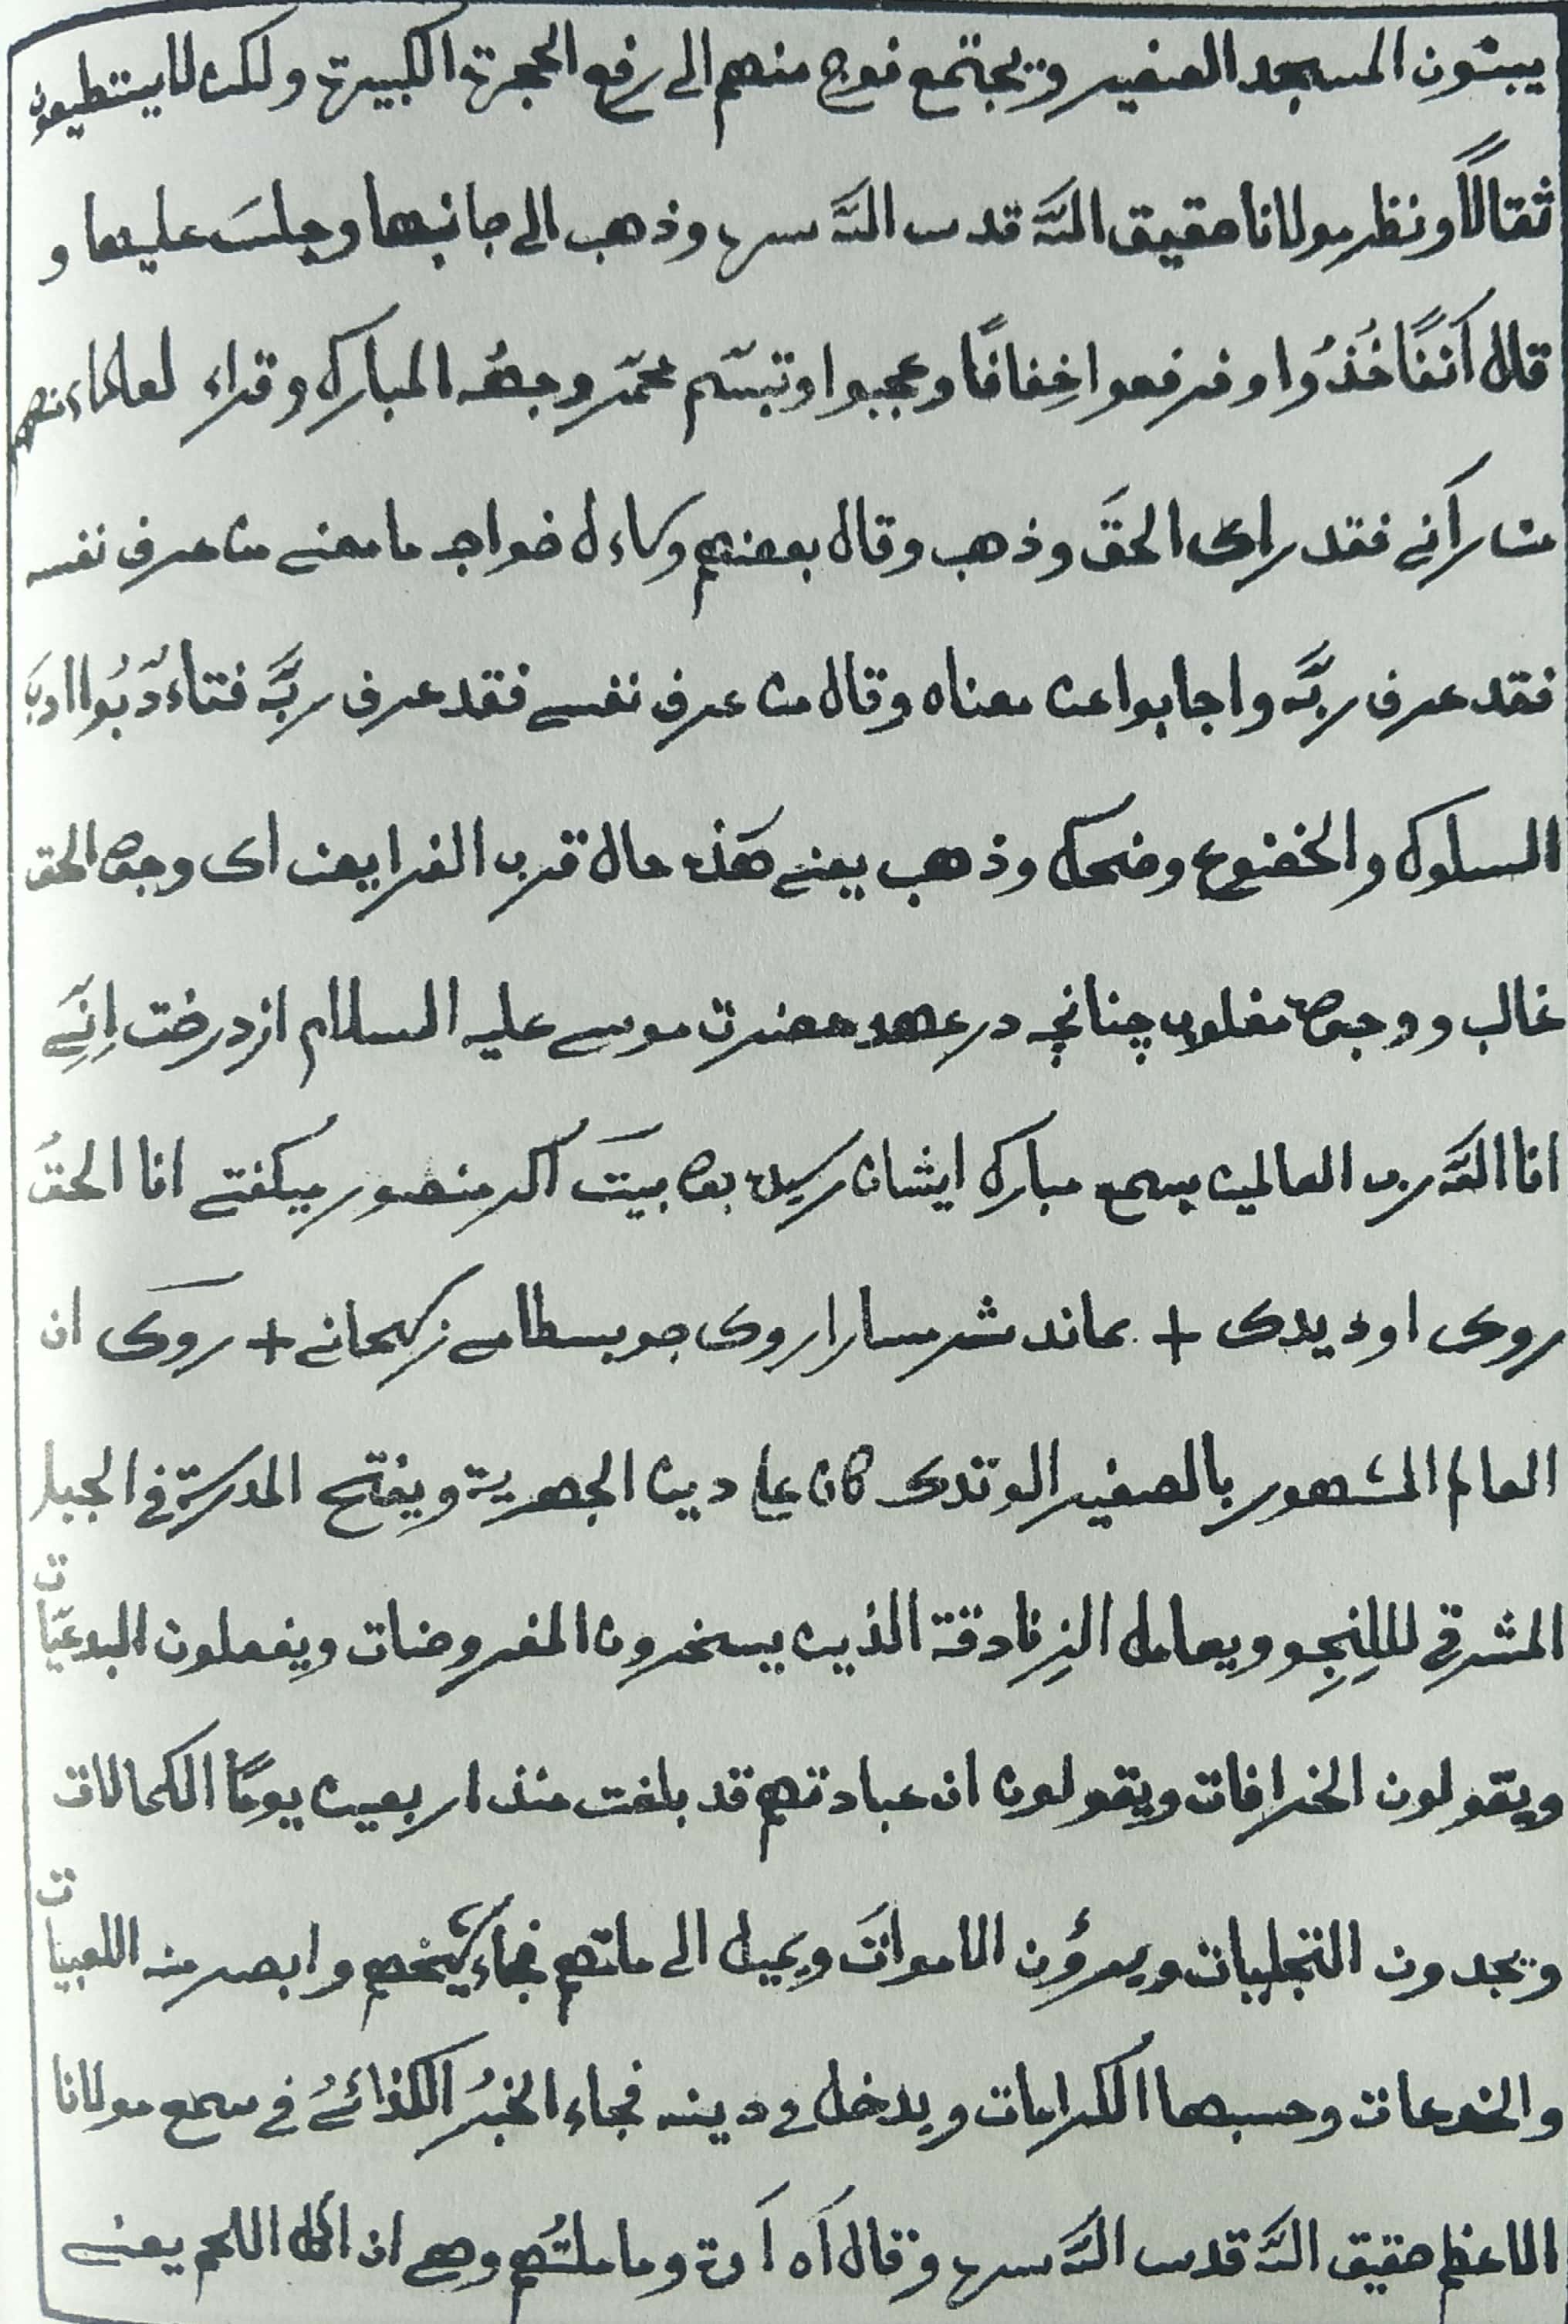 يبنون المسجد الصغير ويجتمع فوج منهم الى رفع الحجرة الكبيرة ولكن لا يستطيعون
ثقالاً ونظر مولانا حقيق الله قدس الله سره وذهب الى جانبها وجلسَ عليها و
قال آنفًا خُذُوا وفرفعوا خِفافًا وعجبوا وتبسّم محمّر وجهُه المبارك وقراء لعلماءنهم
من رآنے فقد راى الحقَ وذهب وقال بعضهم وكاءل خواجه ما معنے من عرف نفسه
فقد عرف ربّه واجابوا عن معناه وقال من عرف نفسے فقد عرف ربَّه فتاءدّبُوا ادبَ
السلوك والخضوع وضحك وذهب يعنے هَذه حال قرب الفرايض اى وجهه الحق
غالب و وجهه مغلوب چنانچه در عهد حضرت موسے عليه السلام از درخت اِنّے
انا الله رب العالمين بسمع مبارك ايشان رسيده بوه بيتَ اگر منصور ميگفتے انا الحقُ
روى او ديدى + بماند شرمسارا روى جو بسطامے ز سبحانے + روى ان
العالم المشهور بالصغير الوتدى كان على دين الجهرية ويفتح المدرسة فى الجبل
المشرقى للِلِنِجو ويعامل الزنادقة الذين يسخرون المفروضات ويفعلون البدعيّات
ويقولون الخرافات ويقولون ان عبادتهم قد بلغت منذ اربعين يومًا الكمالات
ويجدون التجليات ويرؤن الامواتَ ويميل الى ملتهم فجاء شيخهم وابصر منه اللعبيات
والخدعات وحسبها الكرامات ويدخل فى دينه فجاء الخبرُ الكذائےُ فے سمع مولانا
الاعظم حقيق الله قدس الله سره وقال آه آوة وما ملتُهم وهے ان اكل اللحم يعنے